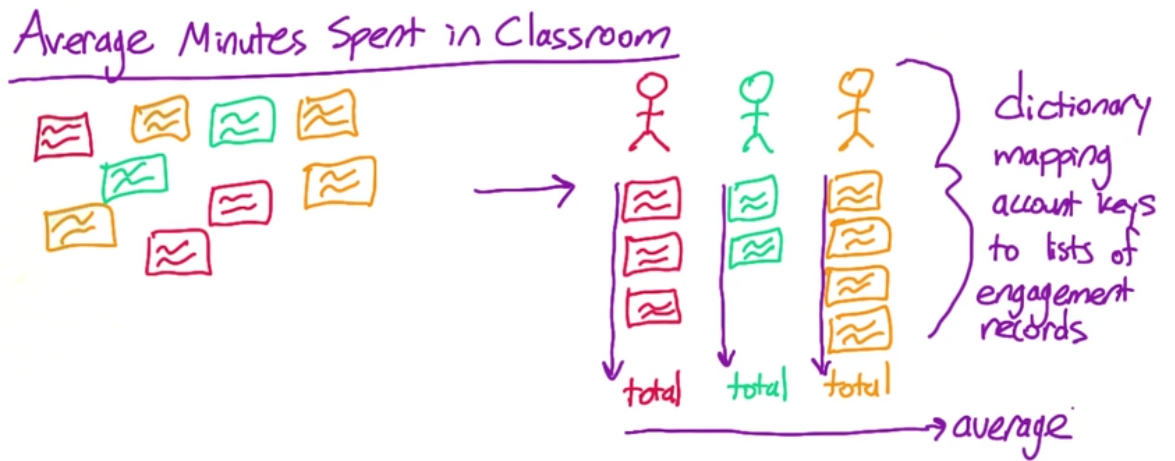 Average Minutes Spent in Classroom
dictionary
mapping
account keys
to lists of
engagement
records
total total total
average